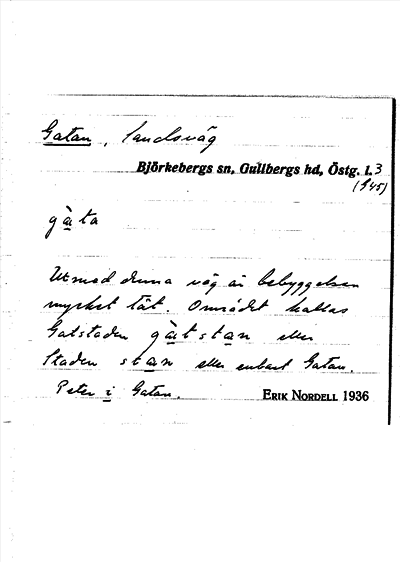 Gatan, Landsväg
Björkebergs sn, Gullbergs hd, Östg. l. 3
(945)
gàta
Utmed denna väg är bebyggelsen
mycket tät. Området kallas
Gatstaden gàtstan eller
Staden stan eller enbart Gatan.
Peter i Gatan. ERIK NORDELL 1936